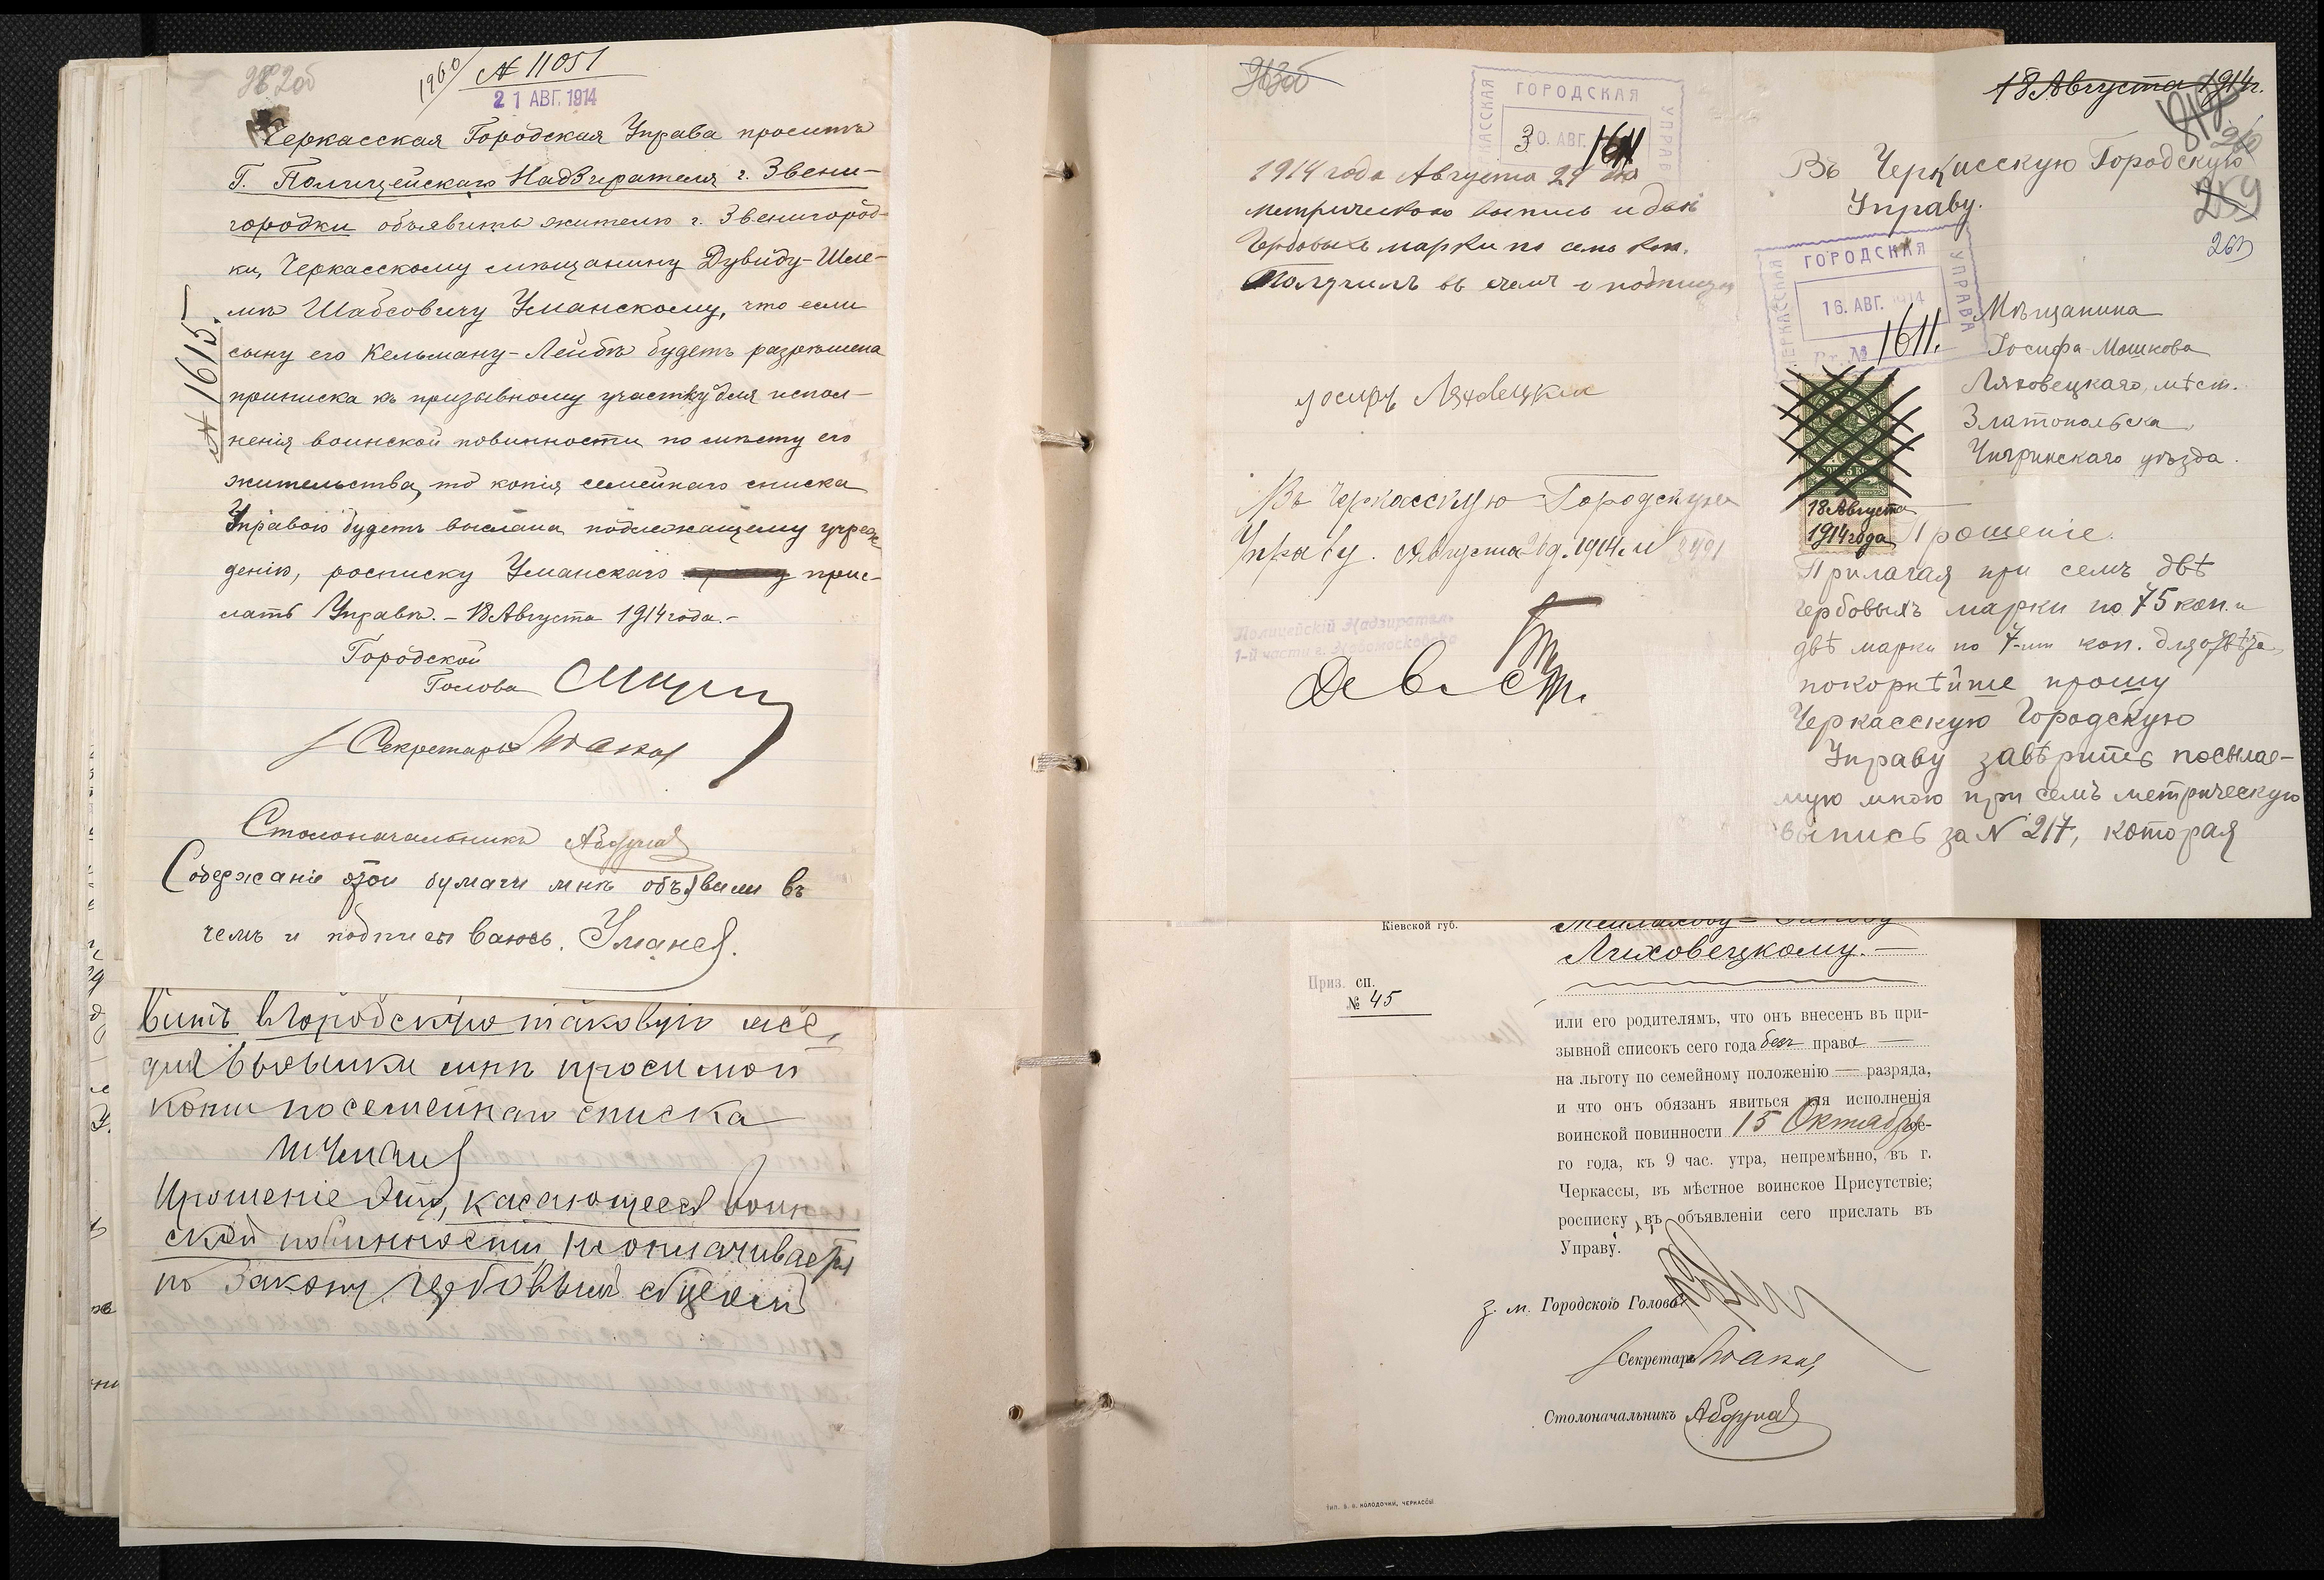 1960/ № 11051
21 АВГ. 1914
Черкасская Городская Управа проситъ
Г. Полицейскаго Надзирателя г. Звени-
городки объявить жителю г. Звенигород-
ки, Черкасскому мѣщанину Дувиду-Шле-
мѣ Шабсовичу Уманскому, что если
сыну его Кельману-Лейбѣ будетъ разрѣшена
приписка къ призывному участку для испол-
ненія воинской повинности по мѣсту его
жительства, то копія семейнаго списка
Управою будетъ выслана подлежащему учреж-
денію, росписку Уманскаго прис-
лать Управѣ. – 18 Августа 1914 года. –
№ 1615
Городской
Голова
Секретарь
Столоначальникъ
Содержаніе этой бумаги мнѣ объявили въ
чемъ и подписываюсь.
вить въ Городскую таковую же,
для высылки мнѣ просимой
копіи посемейнаго списка
Прошеніе это, касающееся воин
ской повинности, не оплачивается
по закону гербовымъ сборомъ
ЧЕРКАССКАЯ ГОРОДСКАЯ УПРАВА
30. АВГ.
1611
1914 года Августа 29 дня
метрическою выпись и двѣ
Гербовыхъ марки по семь коп.
Получилъ въ чемъ и подпишуся
Іосифъ Ляховецкій
Въ Черкасскую Городскую
Управу. Августа 26 д. 1914 г. №
Полицейскій Надзиратель
1-й части г. Новомосковска
18 Августа 1914 г.
260
259
263
Въ Черкасскую Городскую
Управу.
ЧЕРКАССКАЯ ГОРОДСКАЯ УПРАВА
16. АВГ. 1914
Вх. № 1611.
Мѣщанина
Іосифа Мошкова
Ляховецкаго, мѣст.
Златопольска
Чигринскаго уѣзда.
18 Августа
1914 года
Прошеніе.
Прилагая при семъ двѣ
гербовыхъ марки по 75 коп. и
двѣ марки по 7-ми коп. для отвѣта,
покорнѣйше прошу
Черкасскую Городскую
Управу завѣрить посылае-
мую мною при семъ метрическую
выпись за № 217, которая
Кіевской губ.
Ляховецкому. –
Приз. сп.
№ 45
или его родителямъ, что онъ внесенъ въ при-
зывной списокъ сего года безъ права —
на льготу по семейному положенію — разряда,
и что онъ обязанъ явиться для исполненія
воинской повинности 15 Октября се-
го года, къ 9 час. утра, непремѣнно, въ г.
Черкассы, въ мѣстное воинское Присутствіе;
росписку въ объявленіи сего прислать въ
Управу.
з. м. Городского Головы
Секретарь
Столоначальникъ